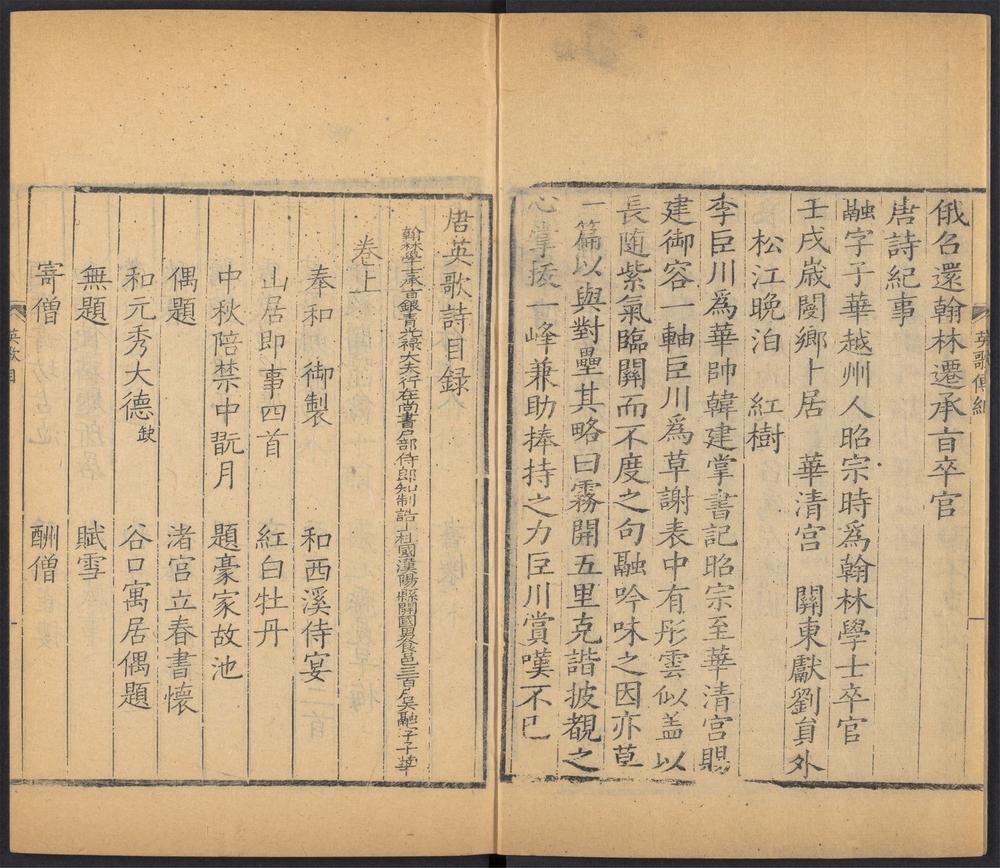 俄召還翰林遷承旨卒官
唐詩紀事
融字子華越州人昭宗時爲翰林學士卒官
壬戌歲閿鄉卜居　華清宮　關東獻劉貟外
松江晚泊　紅樹
李巨川爲華帥韓建掌書記昭宗至華清宮賜
建御容一軸巨川爲草謝表中有彤雲似盖以
長随紫氣臨關而不度之句融吟味之因亦草
一篇以與對壘其略曰霧開五里克諧披覩之
心掌拔一峰兼助捧持之力巨川賞嘆不已
英歌傳紀
唐英歌詩目録
翰林學士承旨銀青光祿大夫行在尚書戶部侍郎知制誥上柱國漢陽縣開國男食邑三百戶吳融字子華
卷上
奉和　御製　和西溪侍宴
山居即事四首　紅白牡丹
中秋陪禁中翫月　題豪家故池
偶題　渚宮立春書懷
和元秀大德缺　谷口寓居偶題
無題　賦雪
寄僧　酬僧
英歌目
一